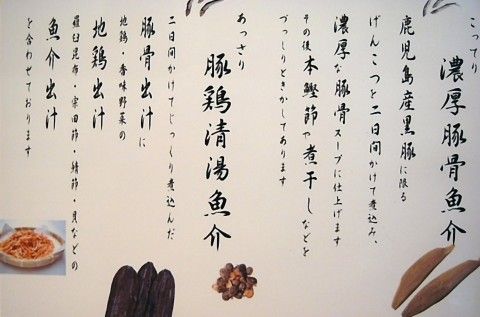 こってり
濃厚豚骨魚介
鹿児島産黒豚に限る
げんこつを二日間かけて煮込み、
濃厚な豚骨スープに仕上げます
その後本鰹節や煮干しなどを
づっしりときかしてあります
あっさり
豚鶏清湯魚介
二日間かけてじっくり煮込んだ
豚骨出汁に
地鶏・香味野菜の
地鶏出汁
羅臼昆布・宗田節・鯖節・貝などの
魚介出汁
とを合わせております